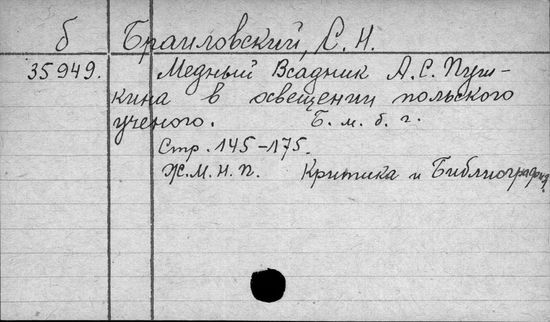 б Браиловский, С. Н.
35949. Медный Всадник А.С. Пуш-
кина в освещении польского
ученого. Б. м. б. г.
Стр. 145-175.
Ж.М.Н.П. Критика и Библиография